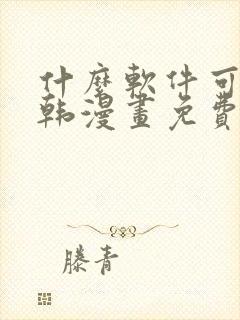 什麼軟件可
韩漫畫免費
滕青